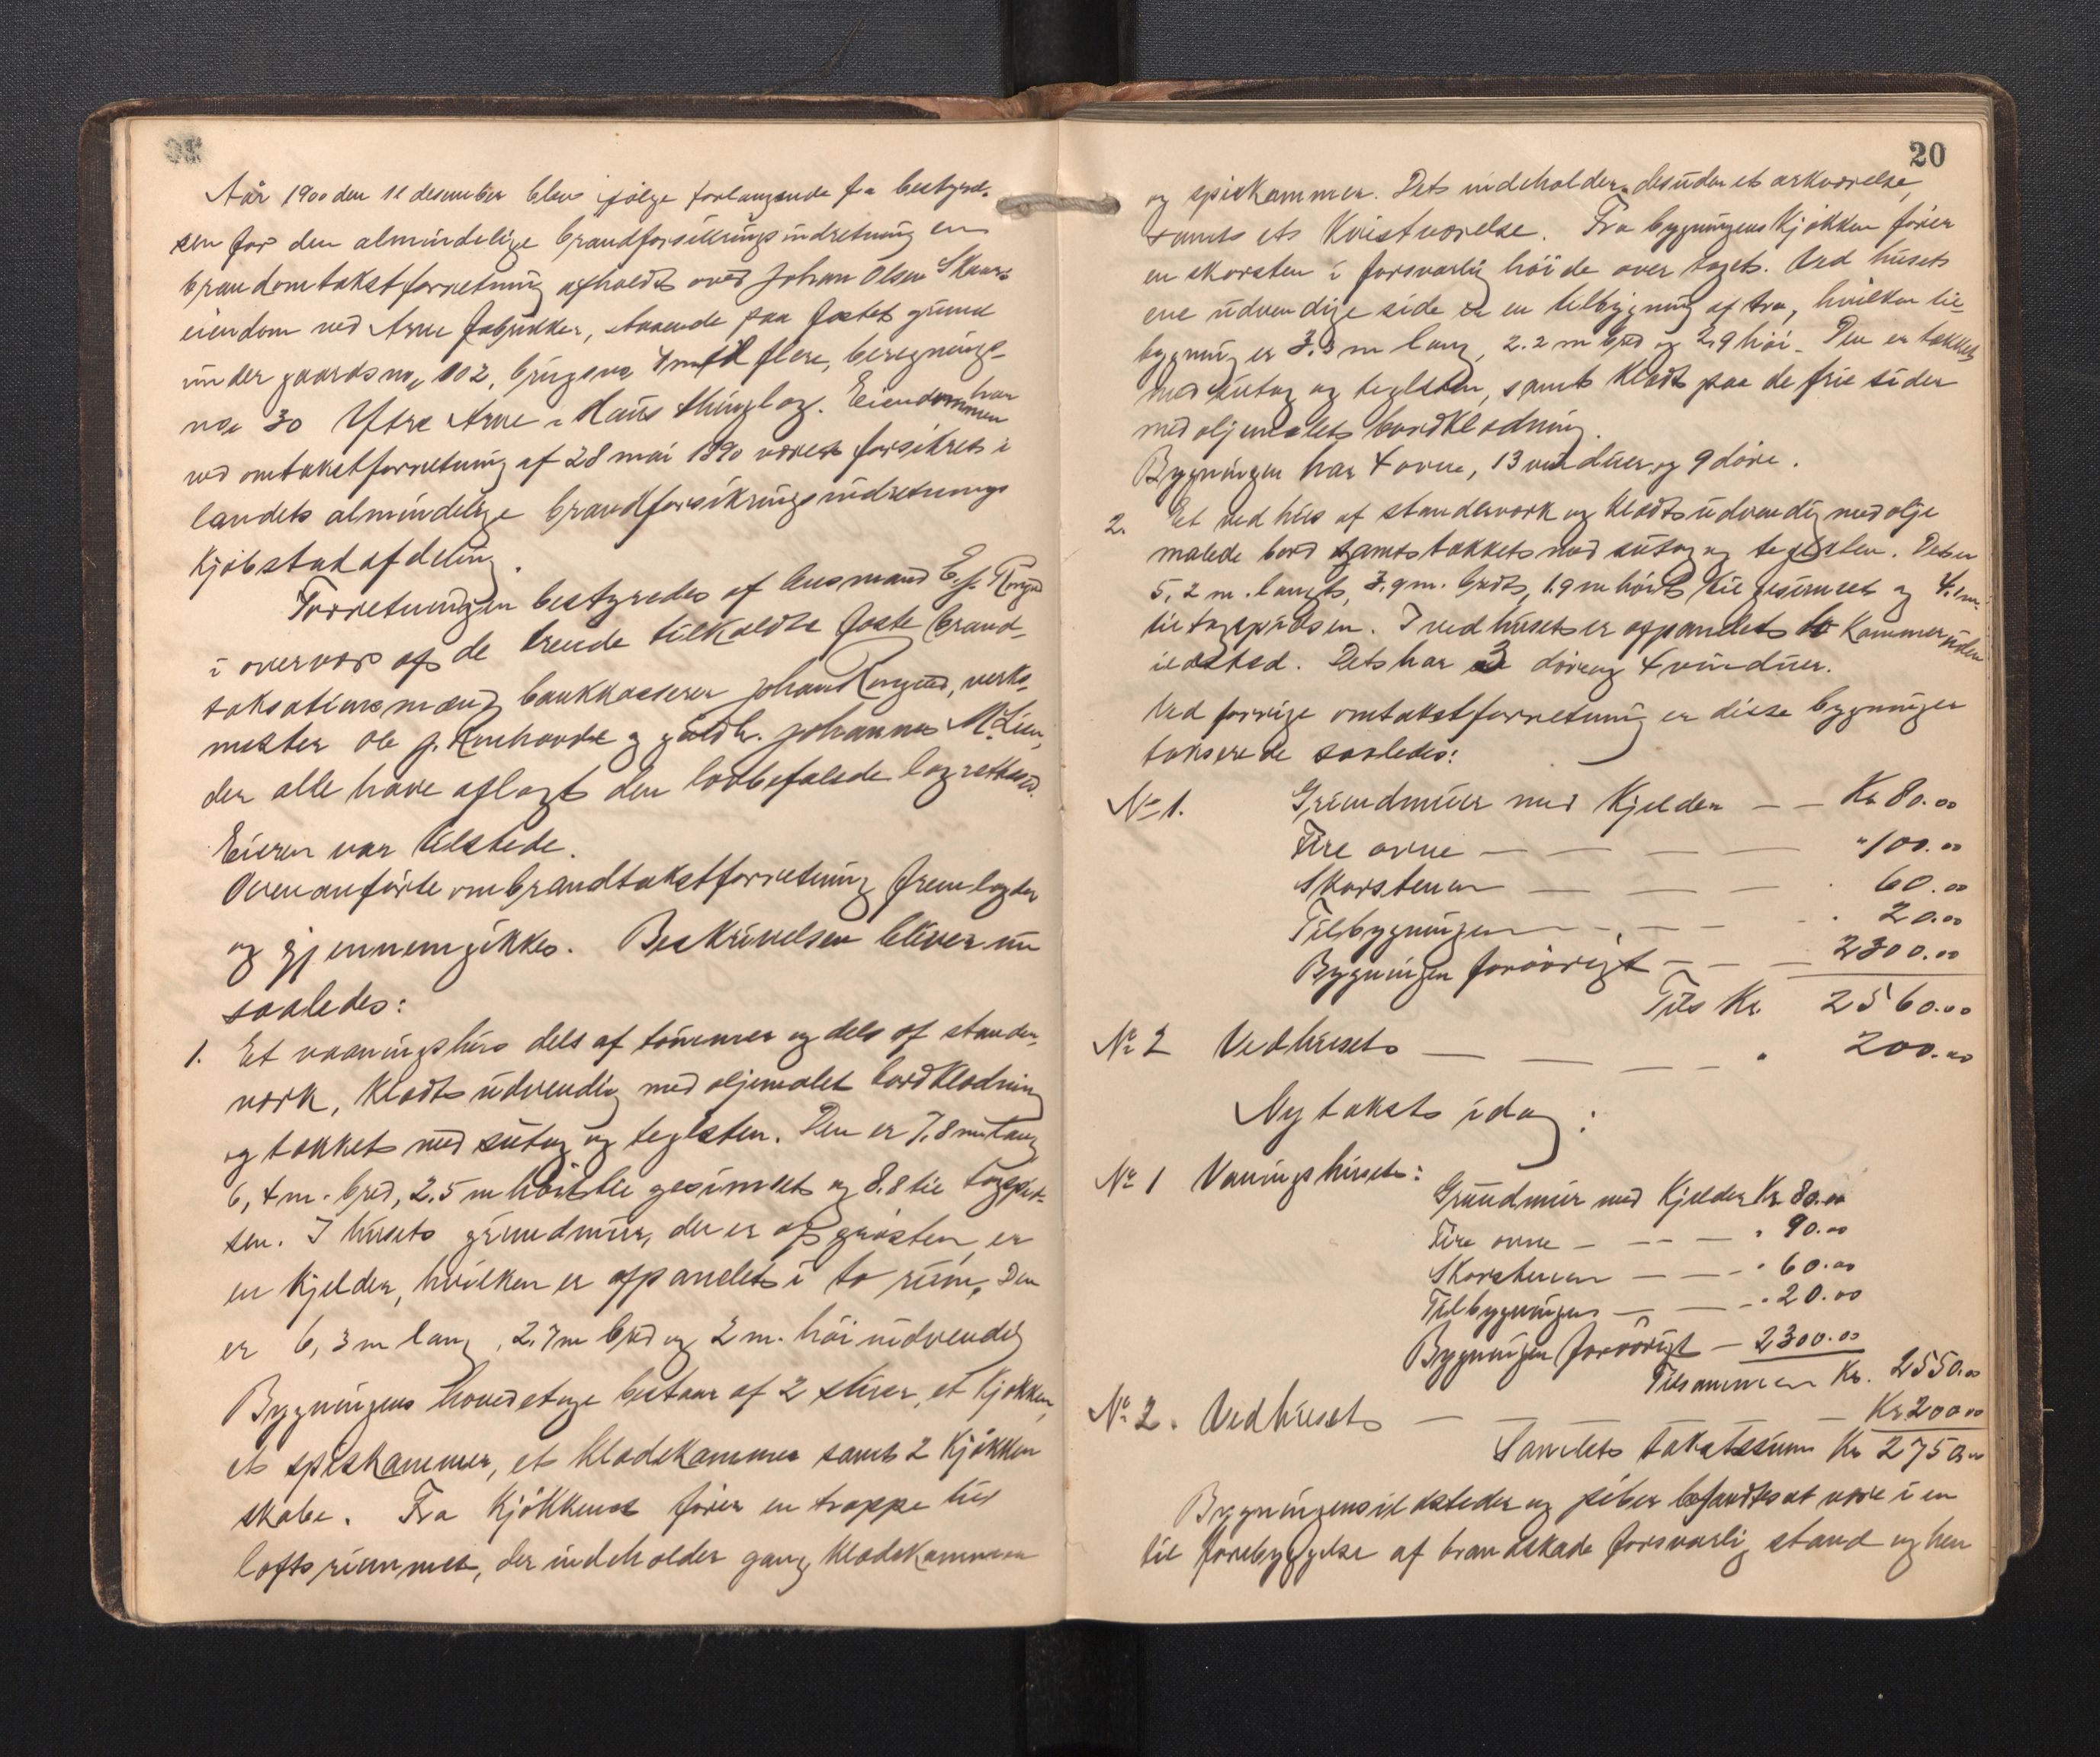 Aar 1900 den 11 desember blev ifølge forlangende fra bestyrel-
sen for den almindelige brandforsikringsindretning en
brandomtakstforretning afholdt over Johan Olsen Skaars
eiendom ved Arne fabrikker, staaende paa festet grund
under gaardsno. 102, brugsno. 4 med flere, beregnings-
no. 30 Ytre Arne i Haus thinglag. Eiendommen har
ved omtakstforretning af 28 mai 1890 været forsikret i
landets almindelige brandforsikringsindretnings
Kjøbstadafdeling.
Forretningen bestyredes af lensmand E. J.
i overvær af de trende tilkaldte faste brand-
taksationsmænd bankkasserer Johan Ringsted, verks-
mester Ole J. og gaardbr. Johannes M. Lien,
der alle have aflagt den lovbefalede lagretteed.
Eieren var tilstede.
Ovenanførte ombrandtakstforretning fremlagdes
og gjennemgikkes. Beskrivelsen bliver nu
saaledes:
1. Et vaaningshus dels af tømmer og dels af stander-
værk, klædt udvendig med oljemalet bordklædning
og tækket med sutag og teglsten. Den er 7,8 m lang
6,4 m. bred, 2.5 m høi til gesimset og 8.8 til tagspid-
sen. I husets grundmur, der er af graasten, er
en kjelder, hvilken er afpanelet i to rum. Den
er 6,3 m lang, 2.7 m bred og 2 m. høi udvendig
Bygningens hovedetage bestaar af 2 stuer, et kjøkken,
et spiskammer, et klædekammer samt 2 kjøkken
skabe. Fra kjøkkenet fører en trappe til
loftsrummet, der indeholder gang, klædekammer
20
og spiskammer. Det indeholder desuden et arkværelse,
samt et Kvistværelse. Fra bygningens Kjøkken fører
en skorsten i forsvarlig høide over taget. Ved husets
ene udvendige side er en tilbygning af træ, hvilken til-
bygning er 3.3 m lang, 2.2 m bred og 2.9 høi. Den er tækket
med sutag og teglsten, samt klædt paa de frie sider
med oljemalet bordklædning.
Bygningen har 4 ovne, 13 vinduer og 9 døre.
2. Et vedhus af standerværk og klædt udvendig med olje
malede bord samt tækket med sutag og teglsten. Det er
5,2 m. langt, 3.9 m. bredt, 1.9 m høit til gesimset og 4.1 m.
til tagspidsen. I vedhuset er afpanelet to Kammer uden
ildsted. Det har 3 døre og 4 vinduer.
Ved forrige omtakstforretning er disse bygninger
takserede saaledes:
No 1. Grundmuur med Kjelder — — Kr 80.00
Fire ovne — — — — — " 100.00
Skorstenen — — — — . 60.00
Tilbygningen — — — . 20.00
Bygningen forøvrigt — — — 2300.00
Tils Kr. 2560.00
No 2 Vedhuset — — — — . 200.00
Ny takst idag:
No 1 Vaaningshuset:
Grundmur med Kjelder Kr 80.00
Fire ovne — — — " 90.00
Skorstenen — — — " 60.00
Tilbygningen — — — " 20.00
Bygningen forøvrigt — 2300.00
Tilsammen Kr. 2550.00
No 2. Vedhuset — — — — — Kr 200.00
Samlet takstsum Kr 2750.00
Bygningens ildsteder og piber befandtes at være i en
til forebyggelse af brandskade forsvarlig stand og hen